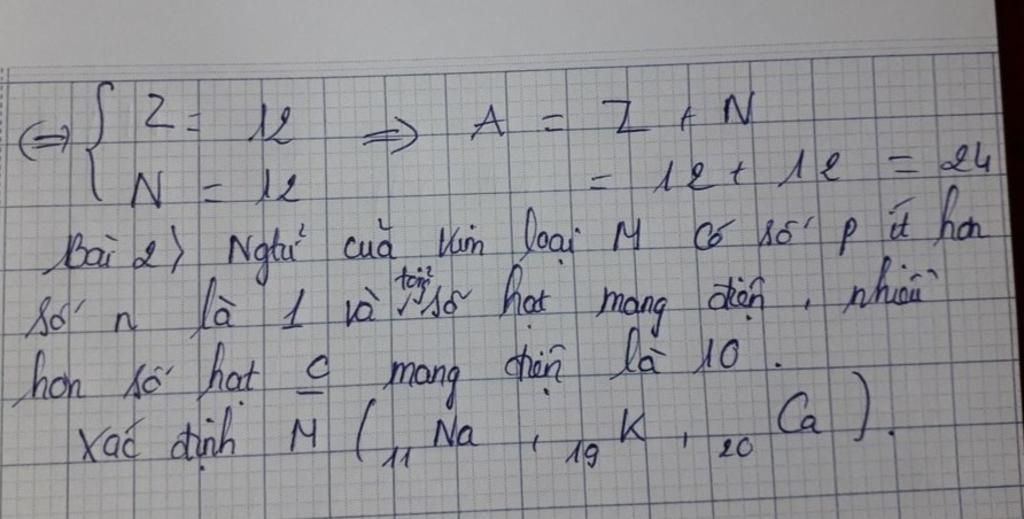 ⇔ { Z = 12 ⇒ A = Z + N
N = 12 = 12 + 12 = 24
Bài 2) Ngtử của kim loại M có số p ít hơn
số n là 1 và tổng số hạt mang điện, nhiều
hơn số hạt c mang điện là 10.
Xác định M ( 11 Na, 19 K, 20 Ca ).